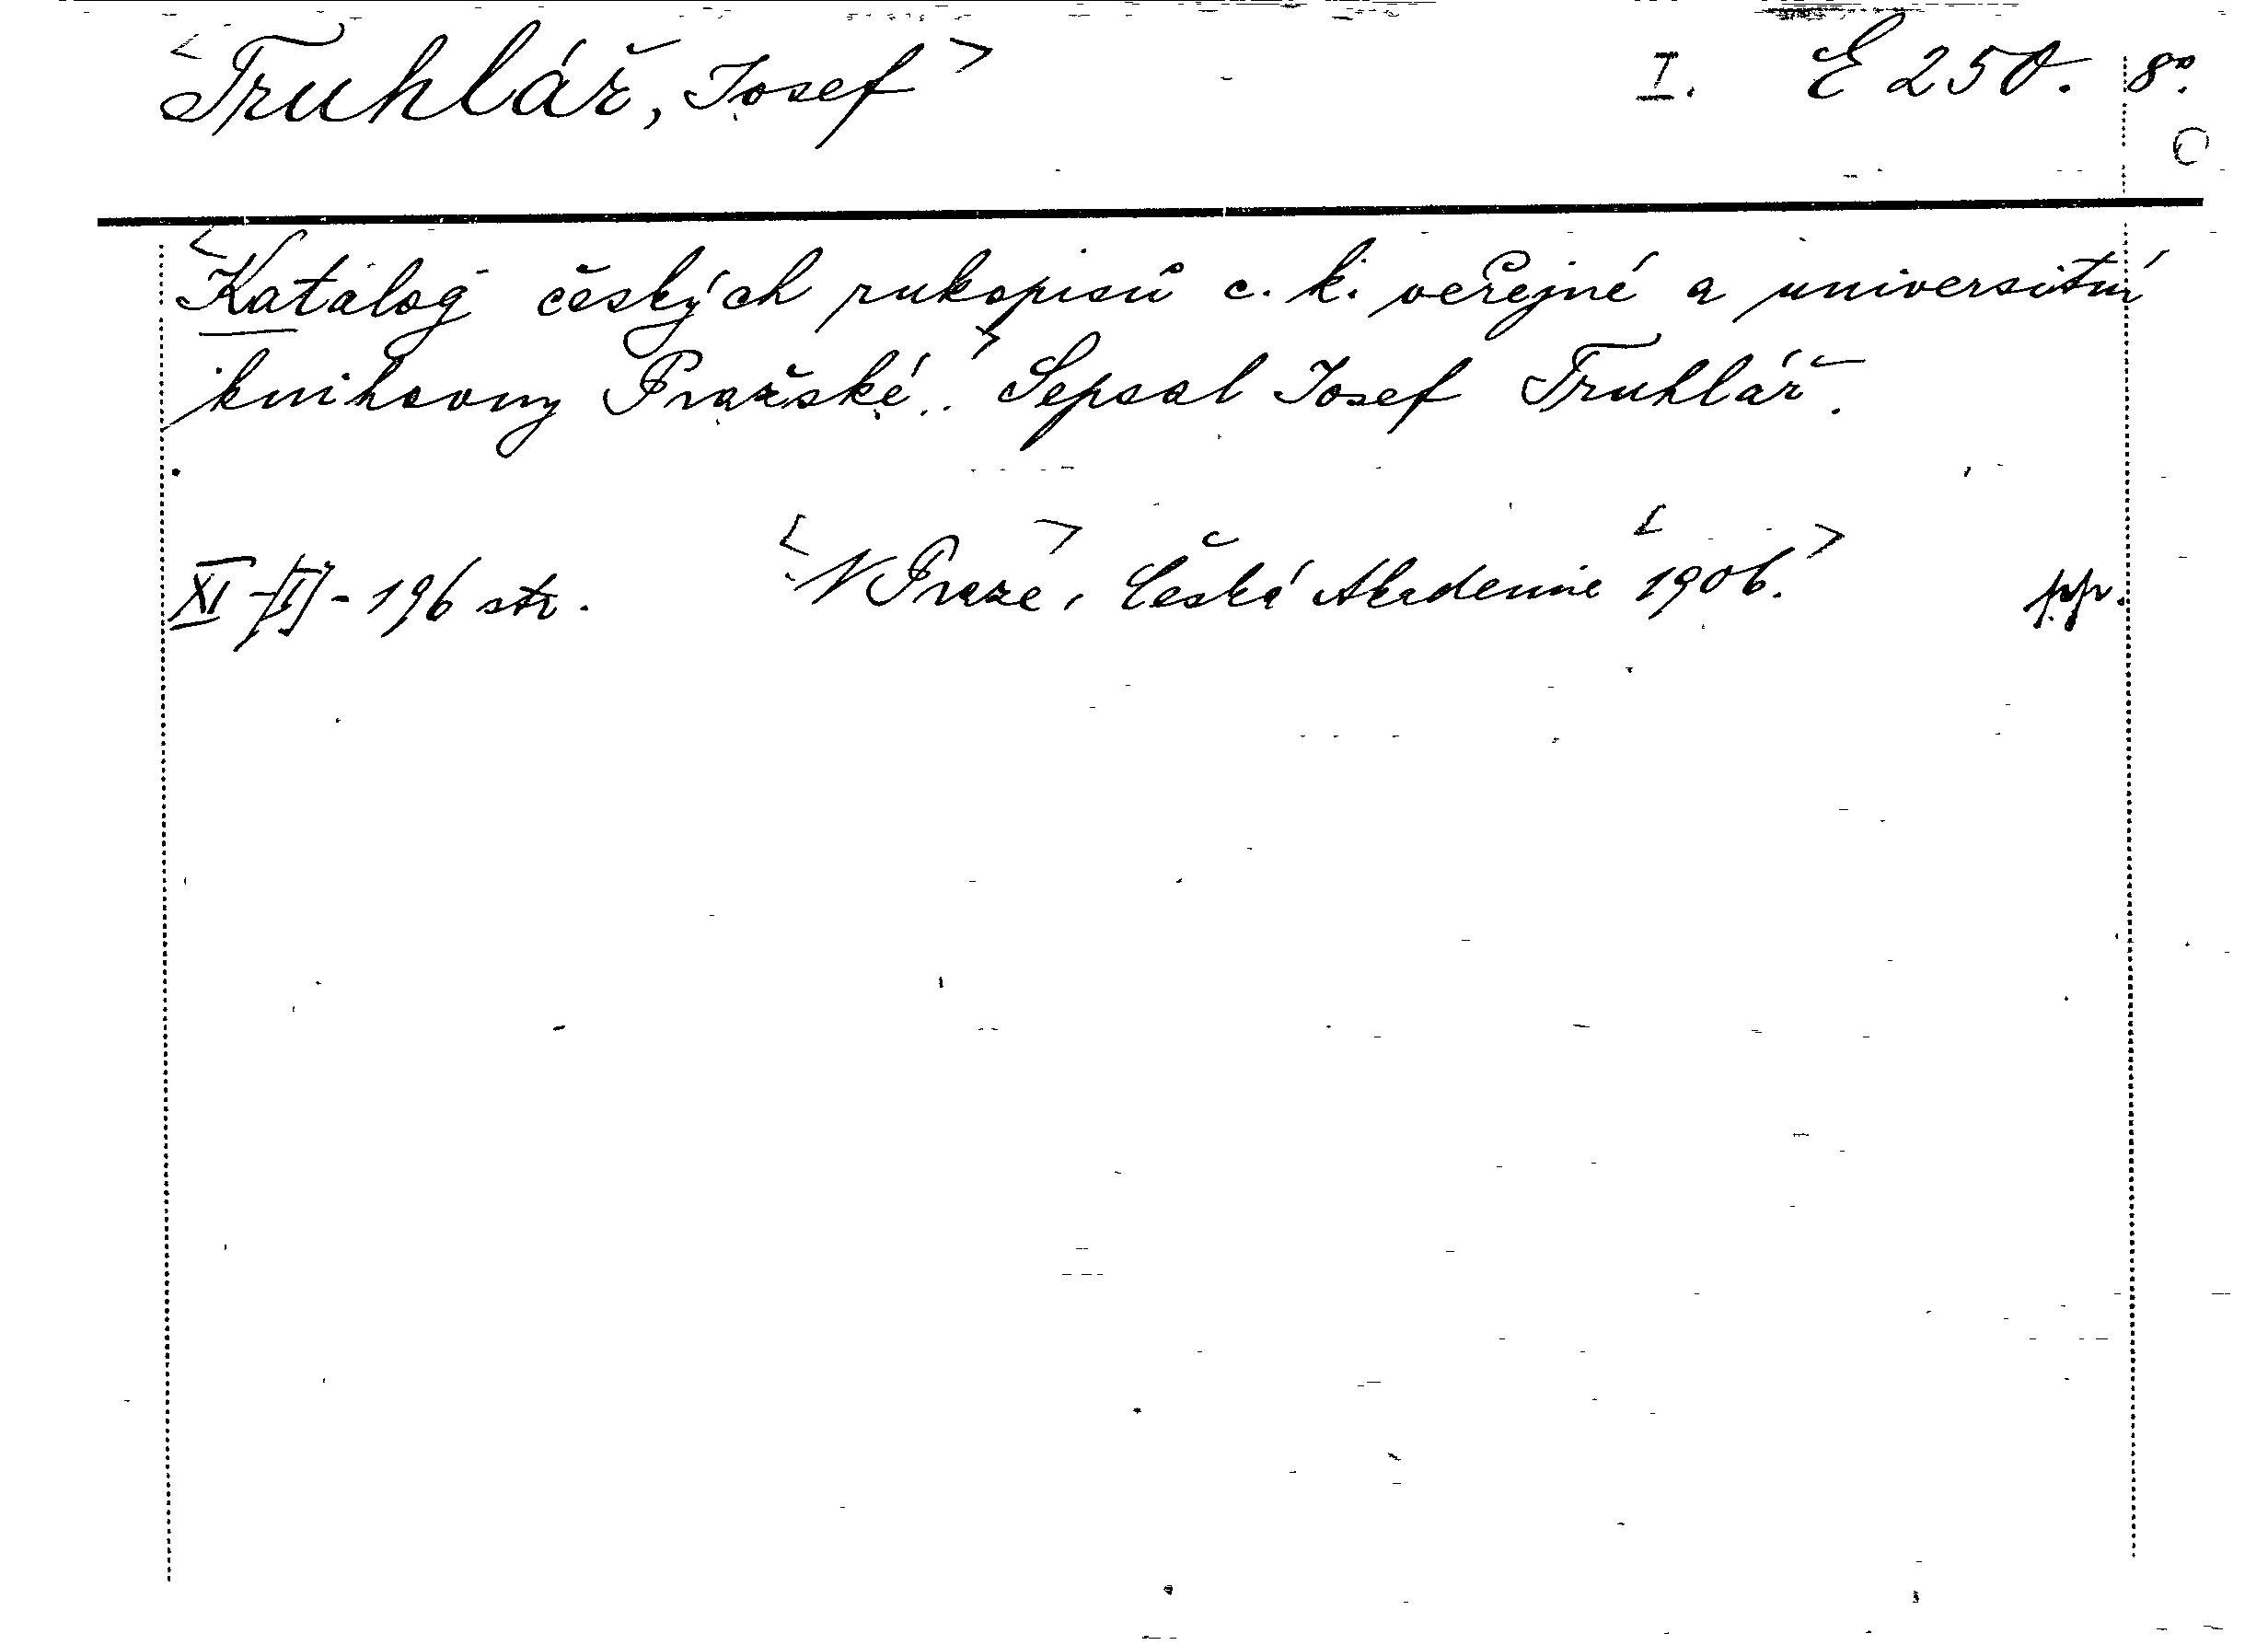 <Truhlář, Josef> I. E 250. 8º.
<Katalog českých rukopisů c. k. veřejné a universitní
knihovny Pražské.> Sepsal Josef Truhlář.
XI-[I]-196 str. <V Praze>, Česká Akademie <1906.> pp.